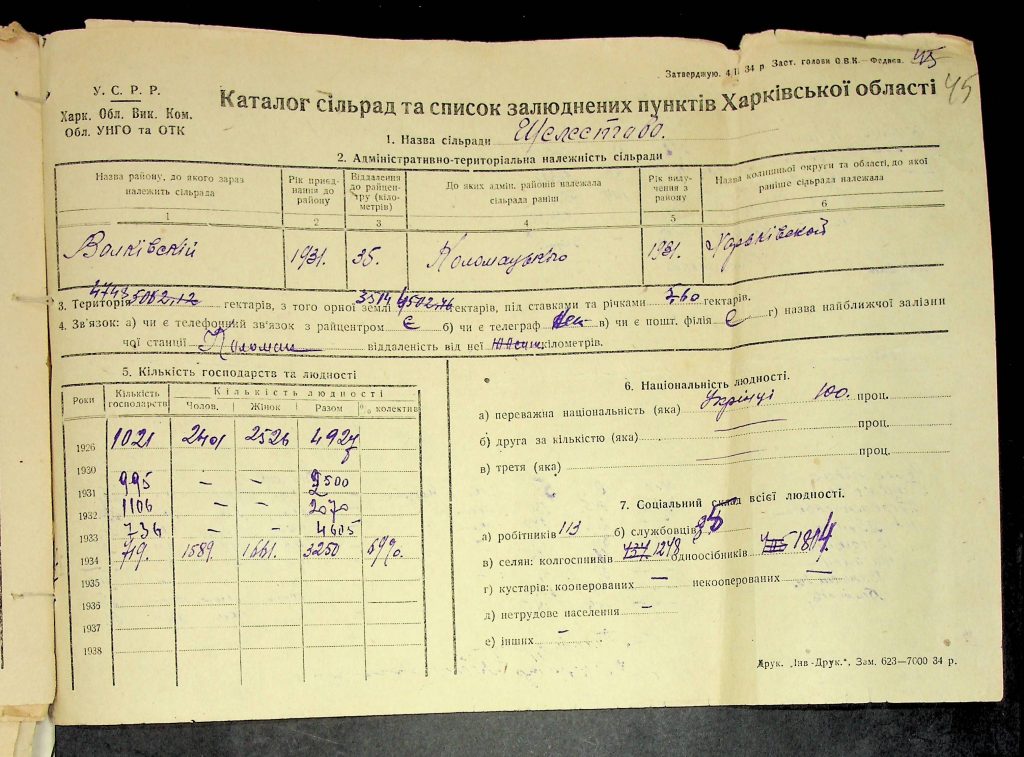 Затверджую. 4 II 34 р Заст. голови О.В.К.—Федяєв. 45
45
У. С. Р. Р.
Харк. Обл. Вик. Ком.
Обл. УНГО та ОТК
Каталог сільрад та список залюднених пунктів Харківської області
1. Назва сільради
2. Адміністративно-територіальна належність сільради
Назву району, до якого зараз належить сільрада
Рік приєднання до району
Віддалення до райцентру (кілометрів)
До яких адмін. районів належала сільрада раніш
Рік вилучення з району
Назва колишньої округи та області, до якої раніше сільрада належала
1 2 3 4 5 6
Валківській 1931. 35. Коломацького 1931. Харьківской
3. Територія 4743 5062.12 гектарів, з того орної землі 3514 4502.76 гектарів, під ставками та річками 760 гектарів.
4. Зв'язок: а) чи є телефонний зв'язок з райцентром Є б) чи є телеграф в) чи є пошт. філія є г) назва найближчої залізни
чої станції Коломак віддаленість від неї кілометрів.
5. Кількість господарств та людності
Роки Кількість господарств Кількість людності
Чолов. Жінок Разом % колектив
1926 1021 2401 2526 4927
1930
1931 995 — — 3500
1932 1106 — — 2070
1933 736 — — 4605
1934 719. 1589. 1661. 3250 69%.
1935
1936
1937
1938
6. Національність людності.
а) переважна національність (яка) Укрінці 100. проц.
б) друга за кількістю (яка) — проц.
в) третя (яка) — проц.
7. Соціальний склад всієї людності.
а) робітників 113 б) службовців 36
в) селян: колгоспників 737 1278 одноосібників 1814.
г) кустарів: кооперованих — некооперованих —
д) нетрудове населення —
е) інших —
Друк. „Інв-Друк.“, Зам. 623—7000 34 р.